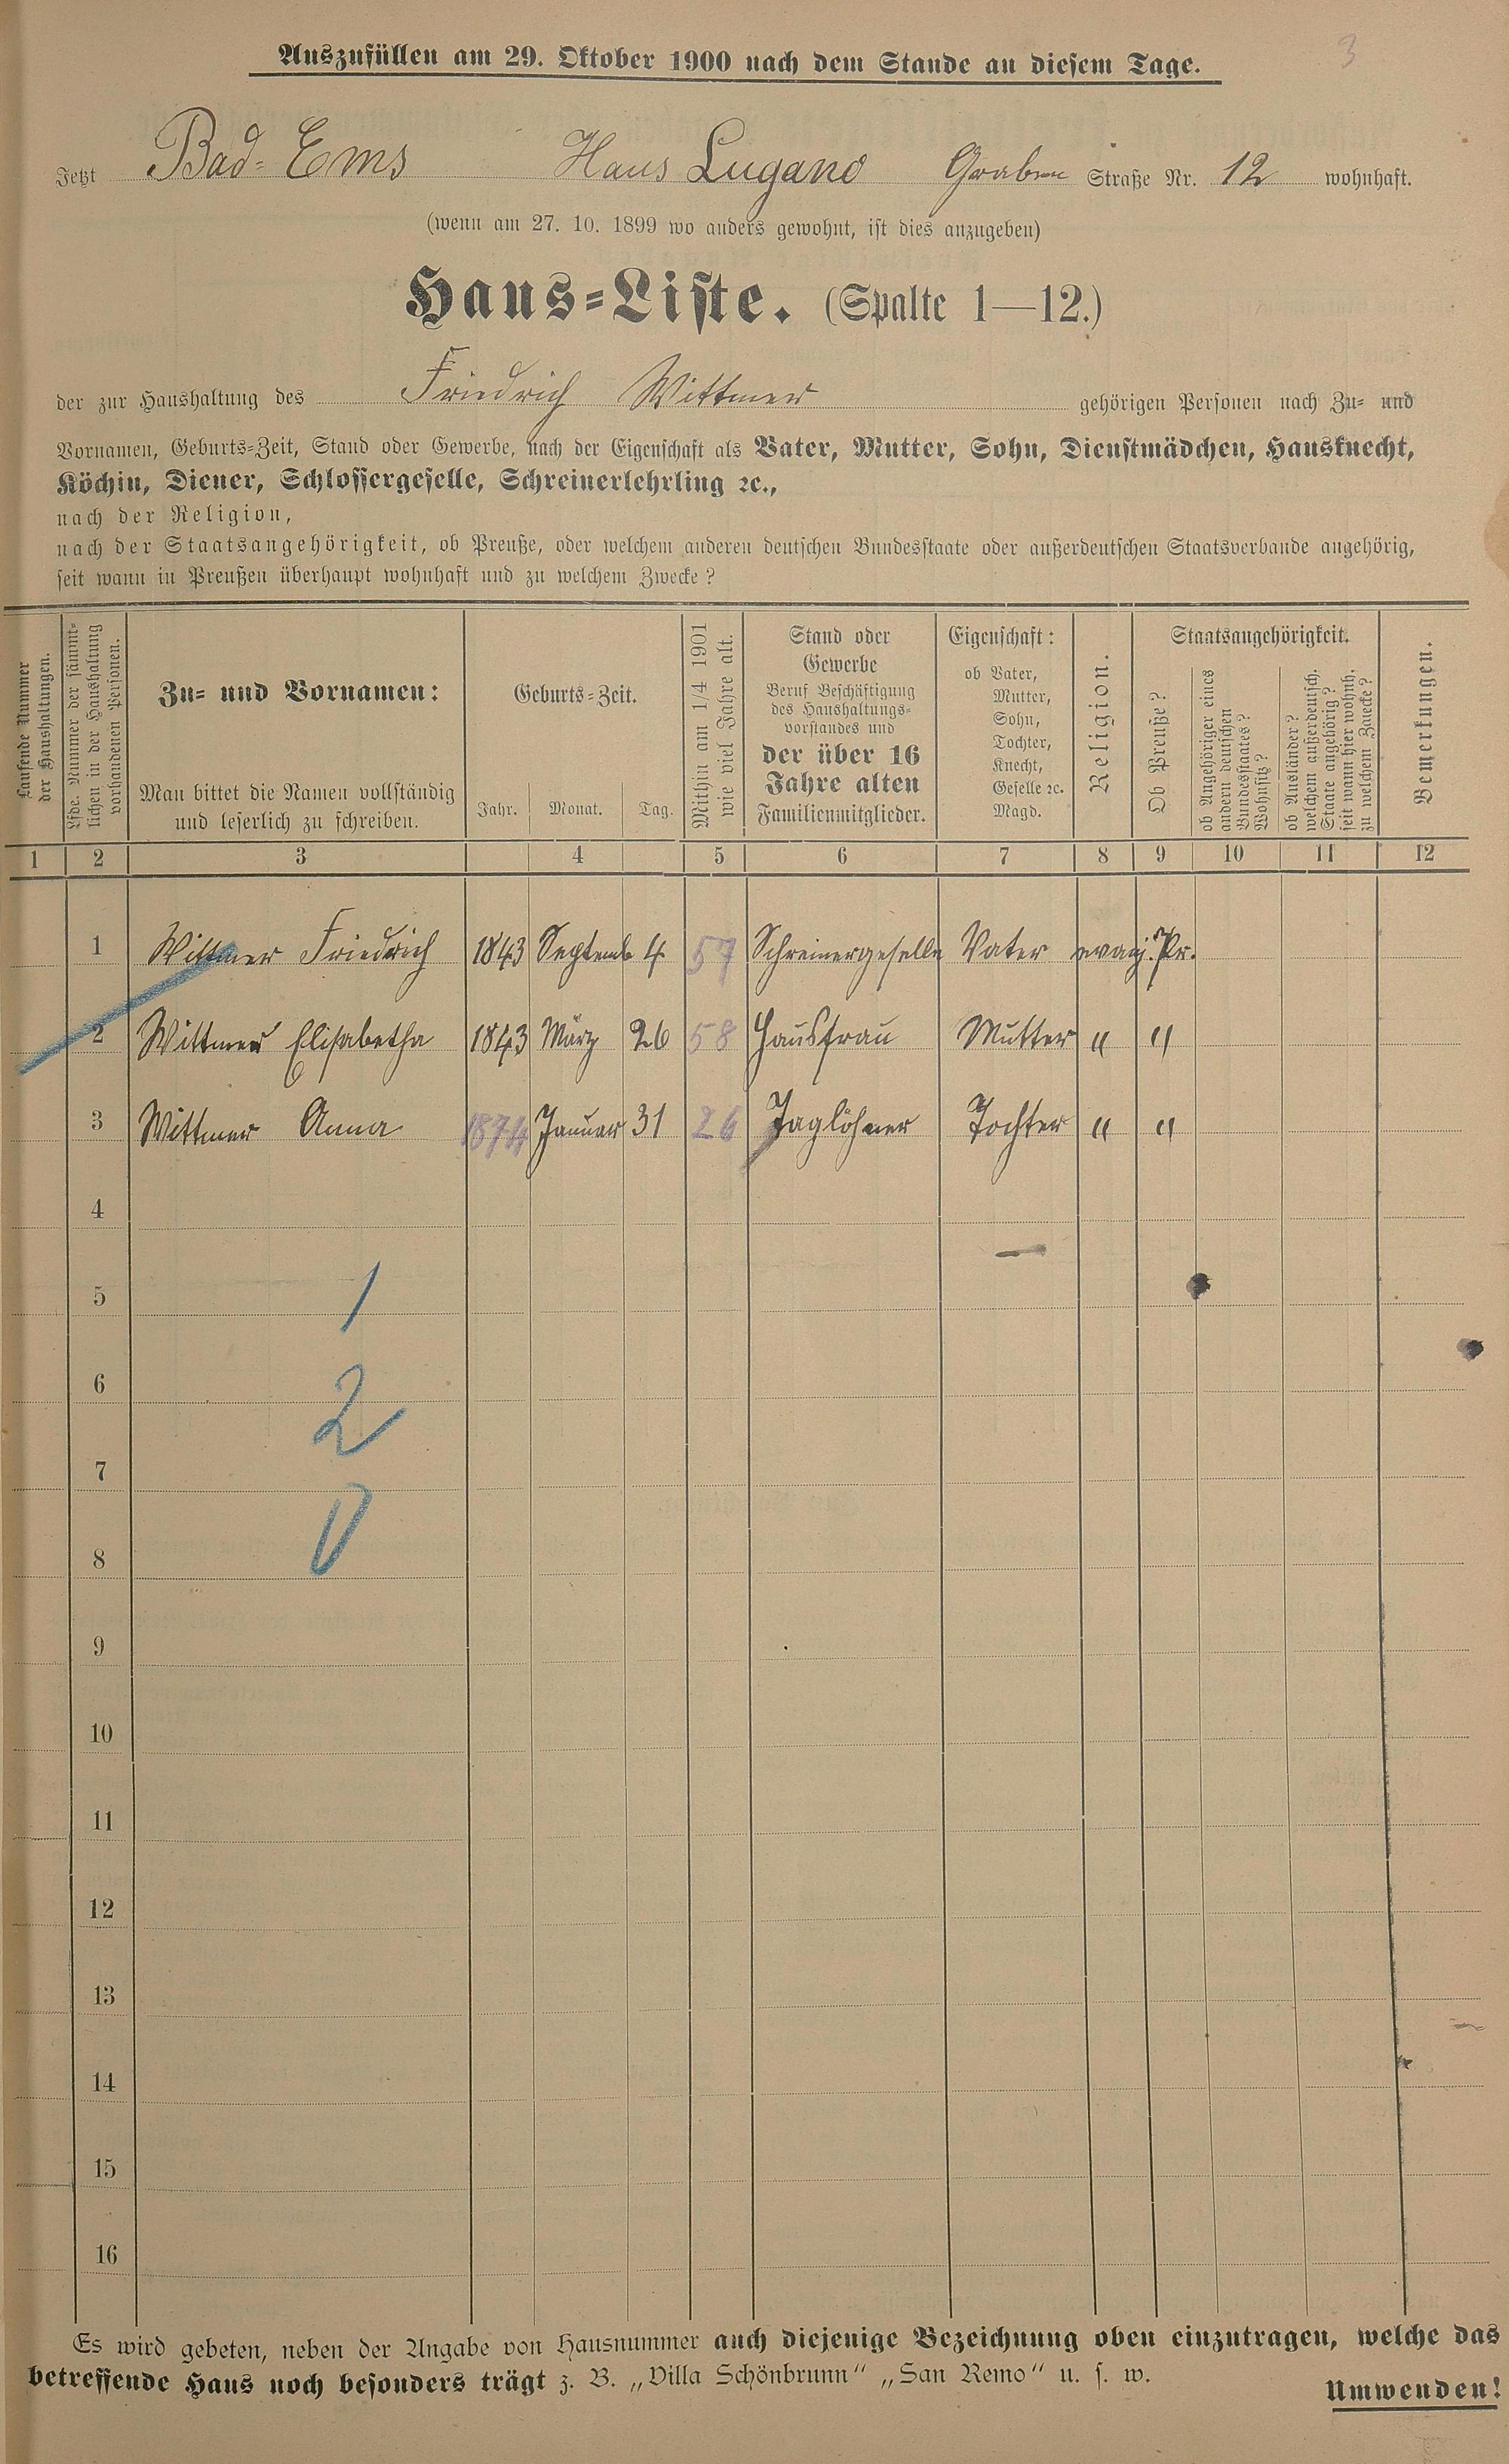 3
Auszufüllen am 29. Oktober 1900 nach dem Stande an diesem Tage.
Jetzt Bad-Ems Haus Lugano Graben Straße Nr. 12 wohnhaft.
(wenn am 27. 10. 1899 wo anders gewohnt, ist dies anzugeben)
Haus-Liste. (Spalte 1—12.)
der zur Haushaltung des Friedrich Wittmer gehörigen Personen nach Zu- und
Vornamen, Geburts-Zeit, Stand oder Gewerbe, nach der Eigenschaft als Vater, Mutter, Sohn, Dienstmädchen, Hausknecht,
Köchin, Diener, Schlossergeselle, Schreinerlehrling ꝛc.,
nach der Religion,
nach der Staatsangehörigkeit, ob Preuße, oder welchem anderen deutschen Bundesstaate oder außerdeutschen Staatsverbande angehörig,
seit wann in Preußen überhaupt wohnhaft und zu welchem Zwecke?
Laufende Nummer
der Haushaltungen.
Lfde. Nummer der sämmt-
lichen in der Haushaltung
vorhandenen Personen.
Zu- und Vornamen:
Man bittet die Namen vollständig
und leserlich zu schreiben.
Geburts-Zeit.
Jahr. Monat. Tag.
Mithin am 1/4 1901
wie viel Jahre alt.
Stand oder
Gewerbe
Beruf Beschäftigung
des Haushaltungs-
vorstandes und
der über 16
Jahre alten
Familienmitglieder.
Eigenschaft:
ob Vater,
Mutter,
Sohn,
Tochter,
Knecht,
Geselle ꝛc.
Magd.
Religion.
Staatsangehörigkeit.
Ob Preuße?
ob Angehöriger eines
andern deutschen
Bundesstaates?
Wohnsitz?
ob Ausländer?
welchem außerdeutsch.
Staate angehörig?
seit wann hier wohnh.
zu welchem Zwecke?
Bemerkungen.
1 2 3 4 5 6 7 8 9 10 11 12
1 Wittmer Friedrich 1843 Septemb 4. 57 Schreinergeselle Vater evang. Pr.
2 Wittmer Elisabetha 1843 März 26 58 Hausfrau Mutter " "
3 Wittmer Anna 1874 Januar 31 26 Taglöhner Tochter " "
4
5
1
6
2
7
0
8
9
10
11
12
13
14
15
16
Es wird gebeten, neben der Angabe von Hausnummer auch diejenige Bezeichnung oben einzutragen, welche das
betreffende Haus noch besonders trägt z. B. „Villa Schönbrunn“ „San Remo“ u. s. w.
Umwenden!